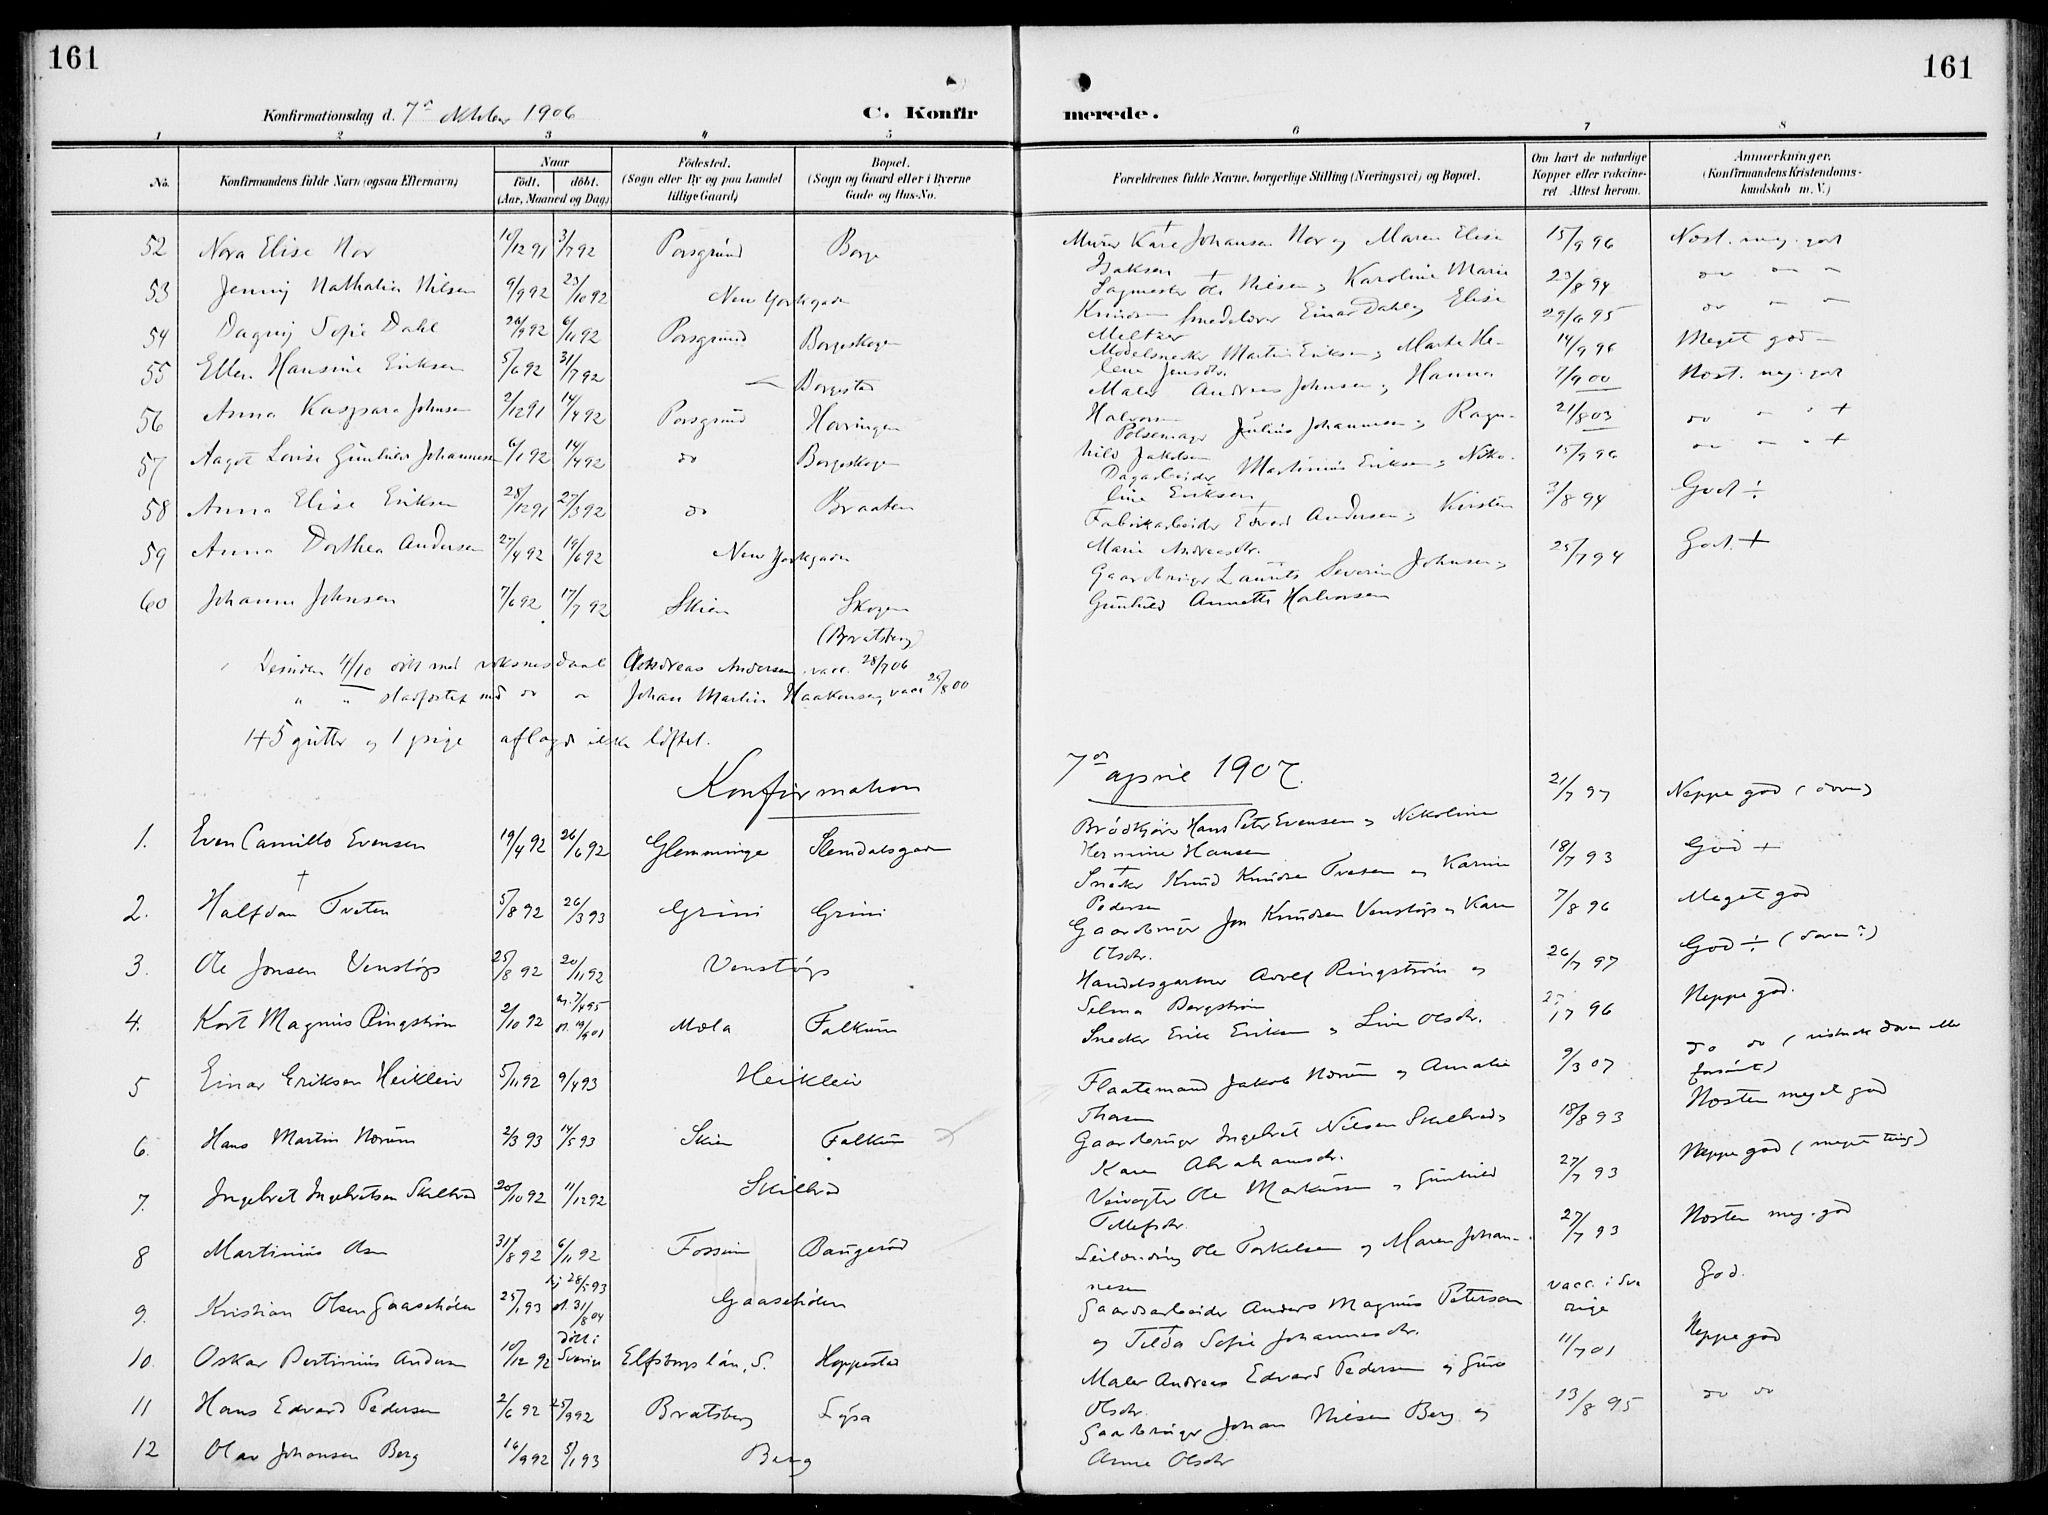 161
161
Konfirmationsdag d. 7de Oktober 1906
C. Konfir
merede.
1 2 3 4 5 6 7 8
No.
Konfirmandens fulde Navn (ogsaa Efternavn)
Naar
födt. döbt.
(Aar, Maaned og Dag)
Födested.
(Sogn eller By og paa Landet
tillige Gaard)
Bopæl.
(Sogn og Gaard eller i Byerne
Gade og Hus-No.
Forældrenes fulde Navne, borgerlige Stilling (Næringsvei) og Bopæl.
Om havt de naturlige
Kopper eller vakcine-
ret Attest herom.
Anmærkninger.
(Konfirmandens Kristendoms-
kundskab m. V.)
52 Nora Elise Nor 10/12 91 3/7 92 Porsgrund Borge Murer Johansen Nor og Maren Elise Isaksen 15/9 96 Næst. meg. god
53 Jenny Nathalia Nilsen 9/9 92 23/10 92 New Yorkgaden Sagmester Ole Nilsen og Karoline Marie Knudsen 23/8 94 do
54 Dagny Sofie Dahl 26/9 92 6/11 92 Porsgrund Borgeskogen Smedelærer Einar Dahl og Elise Meltzer 29/6 95 do
55 Ellen Hansine Eriksen 5/6 92 31/7 92 Borgestad Modelsnedker Martin Eriksen og Marte Helene Jensdtr. 14/9 96 Meget god
56 Anna Kaspara Johnsen 2/12 91 14/4 92 Porsgrund Hovringen Maler Andreas Johnsen og Hanna Halvorsen 7/9 00 Næst. meg. god
57 Aagot Lovise Gunhild Johannesen 6/1 92 14/4 92 do Borgeskogen Pølsemager Julius Johannesen og Ragnhild Jakobsen 21/8 03 do +
58 Anna Elise Eriksen 28/12 91 27/3 92 do Braaten Dagarbeider Martinius Eriksen og Nikoline Eriksen 15/9 96 +
59 Anna Dorthea Andersen 27/4 92 19/6 92 New Yorkgaden Fabrikarbeider Edvard Andersen og Kirsten Marie Andreasdtr. 3/8 94 God ÷
60 Johanne Johnsen 7/6 92 17/7 92 Skien Skogen (Bratsberg) Gaardbruger Laurits Severin Johnsen og Gunhild Annette Halvorsen 25/7 94 God. +
Desuden 4/10 døbt med voksnes daab Andreas Andersen vacc. 28/7 06
" " stadfæstet med do Johan Martin Haakonsen, vacc 25/8 00
45 gutter og 1 pige aflagde ikke løftet.
Konfirmation 7de april 1907.
1. Even Camillo Evensen 19/4 92 26/6 92 Glemminge Slemdalsgaden Brødkjører Hans Peter Evensen og Nikoline Hermine Hansen 21/7 97 Neppe god (doven)
2. Halfdan Tveten 5/8 92 26/3 93 Grini Grini Snedker Knud Knudsen Tvesen og Karine Pedersen 18/7 93 God +
3. Ole Jonsen Venstøp 25/8 92 20/11 92 Venstøp Gaardbruger Jon Knudsen Venstøp og Karen Olsdtr. 7/8 96 Meget god
4. Kort Magnus Ringstrøm 2/10 92 7/4 95 Mæla Falkum Handelsgartner Adolf Ringstrøm og Selma Bergstrøm 26/7 97 God ÷ (doven?)
5 Einar Eriksen Heiklein 5/11 92 9/4 93 Heiklein Snedker Erik Eriksen og Line Olsdtr. 96 Neppe god.
6. Hans Martin Nærum 2/3 93 14/5 93 Skien Falkum Flaatemand Jakob Nærum og Amalie Thorsen 9/3 07 do do (doven eller forsømt)
7. Ingebret Ingebretsen Skilbred 20/10 92 11/12 92 Skilbred Gaardbruger Ingebret Nilsen Skilbred og Karen Abrahamsdtr. 18/8 93 Næsten meget god
8 Martinius Olsen 31/8 92 6/11 92 Fossum Baugerød Veivogter Ole Markussen og Gunhild Tellefsdtr. 27/7 93 Neppe god (meget tung)
9. Kristian Olsen Gaaseholen 25/1 93 hj 28/5 93 st. 31/8 04 Gaaseholen Leilænding Ole Torkelsen og Maren Johannesen 27/7 93 Næsten meg. god
10. Oskar Bertinius Andersen 10/12 92 døbt i Sverige Elfsborgs län, S. Hoppestad Gaardsarbeider Anders Magnus Peterson og Tilda Sofie Johannesdtr. vacc. i Sverige God.
11 Hans Edvard Pedersen 2/6 92 25/9 92 Bratsberg Lysa Maler Andreas Edvard Pedersen og Guro Olsdtr. 11/7 01 Neppe god
12 Olav Johansen Berg 16/9 92 5/1 93 Berg Gaardbruger Johan Nilsen Berg og Anne Olsdtr 13/8 95 do do